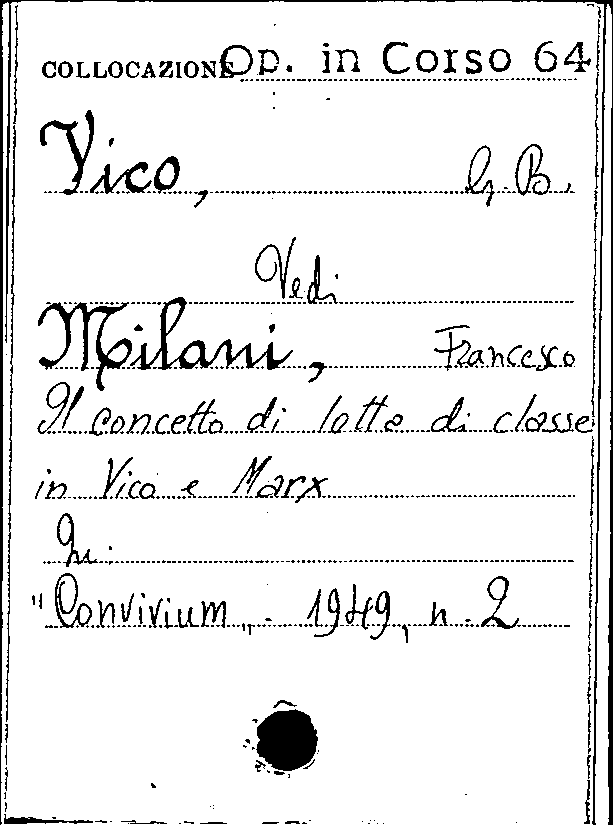 COLLOCAZIONE Op. in Corso 64
Vico, G. B.
Vedi
Milani, Francesco
Il concetto di lotta di classe
in Vico e Marx
In:
"Convivium„. 1949, n. 2